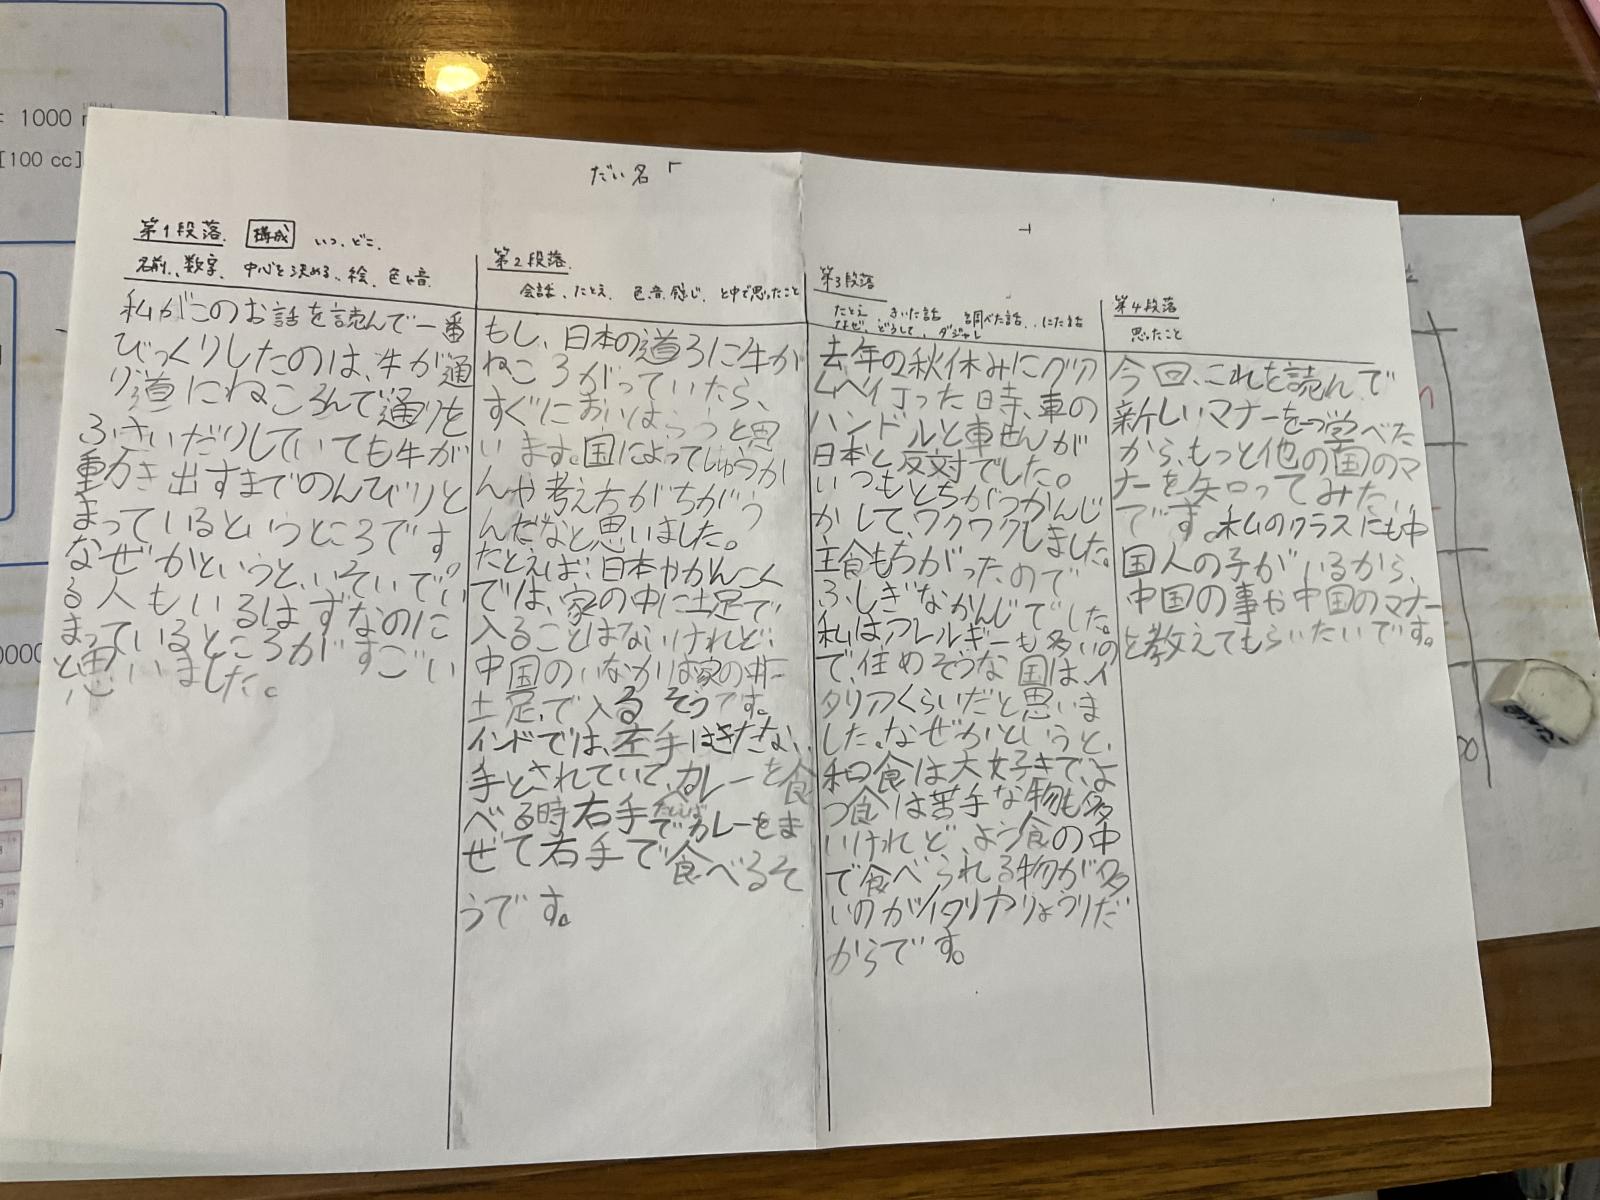 = 1000
[100 cc]
0000
だい名「
」
第1段落 構成 いつ、どこ、
名前、数字、中心を決める、絵、色や音
私がこのお話を読んで一番
びっくりしたのは、牛が通
り道にねころんで通りを
ふさいだりしていても牛が
動き出すまでのんびりと
まっているというところです。
なぜかというと、いそいでい
る人もいるはずなのに
まっているところがすごい
と思いました。
第2段落
会話、たとえ、色、音、感じ、と中で思ったこと
もし、日本の道ろに牛が
ねころがっていたら、
すぐにおいはらうと思
います。国によってしゅうか
んや考え方がちがう
んだなと思いました。
たとえば、日本やかんこく
では、家の中に土足で
入ることはないけれど、
中国のいなかは家の中に
土足で入るそうです。
インドでは、左手はきたない
手とされていて、カレーを食
べる時右手でカレーをま
ぜて右手で食べるそ
うです。
第3段落
たとえ きいた話 調べた話、にた話
なぜ、どうして、ダジャレ
去年の秋休みにグア
ムへ行った時、車の
ハンドルと車せんが
日本と反対でした。
いつもとちがうかんじ
がして、ワクワクしました。
主食もちがったので
ふしぎなかんじでした。
私はアレルギーも多いの
で、住めそうな国は、イ
タリアくらいだと思いま
した。なぜかというと、
和食は大好きで、よ
う食は苦手な物も多
いけれど、よう食の中
で食べられる物が多
いのがイタリアりょうりだ
からです。
第4段落
思ったこと
今回、これを読んで
新しいマナーを一つ学べた
から、もっと他の国のマ
ナーを知ってみたい
です。私のクラスにも中
国人の子がいるから、
中国の事や中国のマナー
を教えてもらいたいです。